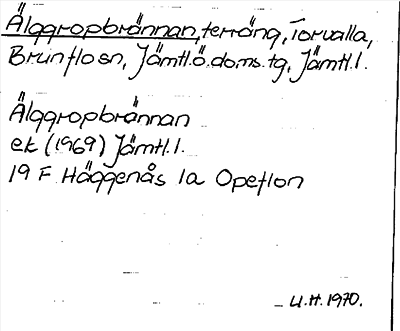 Älggropbrännan, terräng, Torvalla,
Brunflo sn, Jämtl.Ö.doms.tg, Jämtl.l.
Älggropbrännan
ek (1969) Jämtl.l.
19 F Häggenås 1a Opeflon
U.H. 1970.